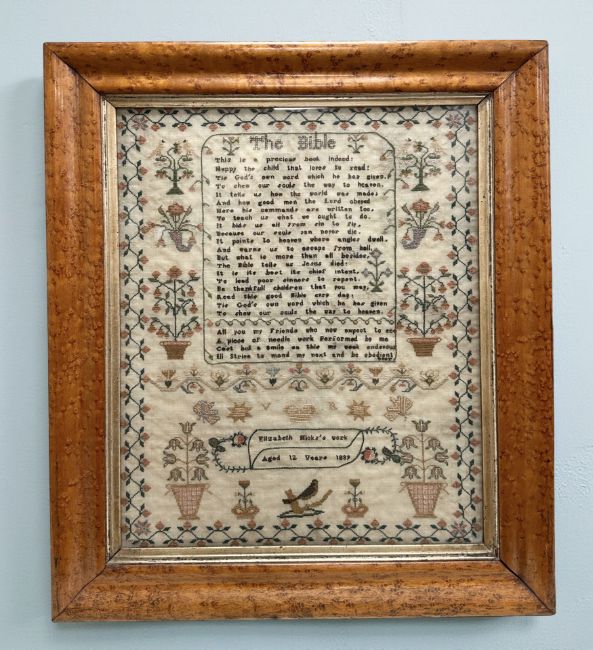 The Bible
This is a precious book indeed:
Happy the child that loves to read:
Tis God's own word which he has given,
To shew our souls the way to heaven.
It tells us how the world was made:
And how good men the Lord obeyed
Here his commands are written too,
To teach us what we ought to do.
It bids us all from sin to fly,
Because our souls can never die.
It points to heaven where angles dwell.
And warns us to escape from hell.
But what is more than all besides:
The Bible tells us Jesus died:
It is its best its chief intent,
To lead poor sinners to repent.
Be thankfull children that you may,
Read this good Bible every day:
Tis God's own word which he has given
To shew our souls the way to heaven.
All you my Friends who now expect to see
A piece of needle work Performed by me
Cast but a smile on this my endavour
Ill Strive to mend my next and be obedient
V R
Elizabeth Hicks's work
Aged 12 Years 1839